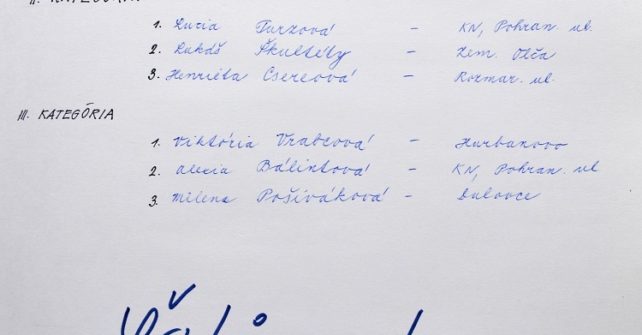 II. KATEGÓRIA
1. Lucia Turzová - KN, Pohran. ul.
2. Lukáš Škultéty - Zem. Olča
3. Henrieta Csereová - Rozmar. ul.
III. KATEGÓRIA
1. Viktória Vrabcová - Hurbanovo
2. Alexia Bálintová - KN, Pohran. ul
3. Milena Pošiváková - Dulovce